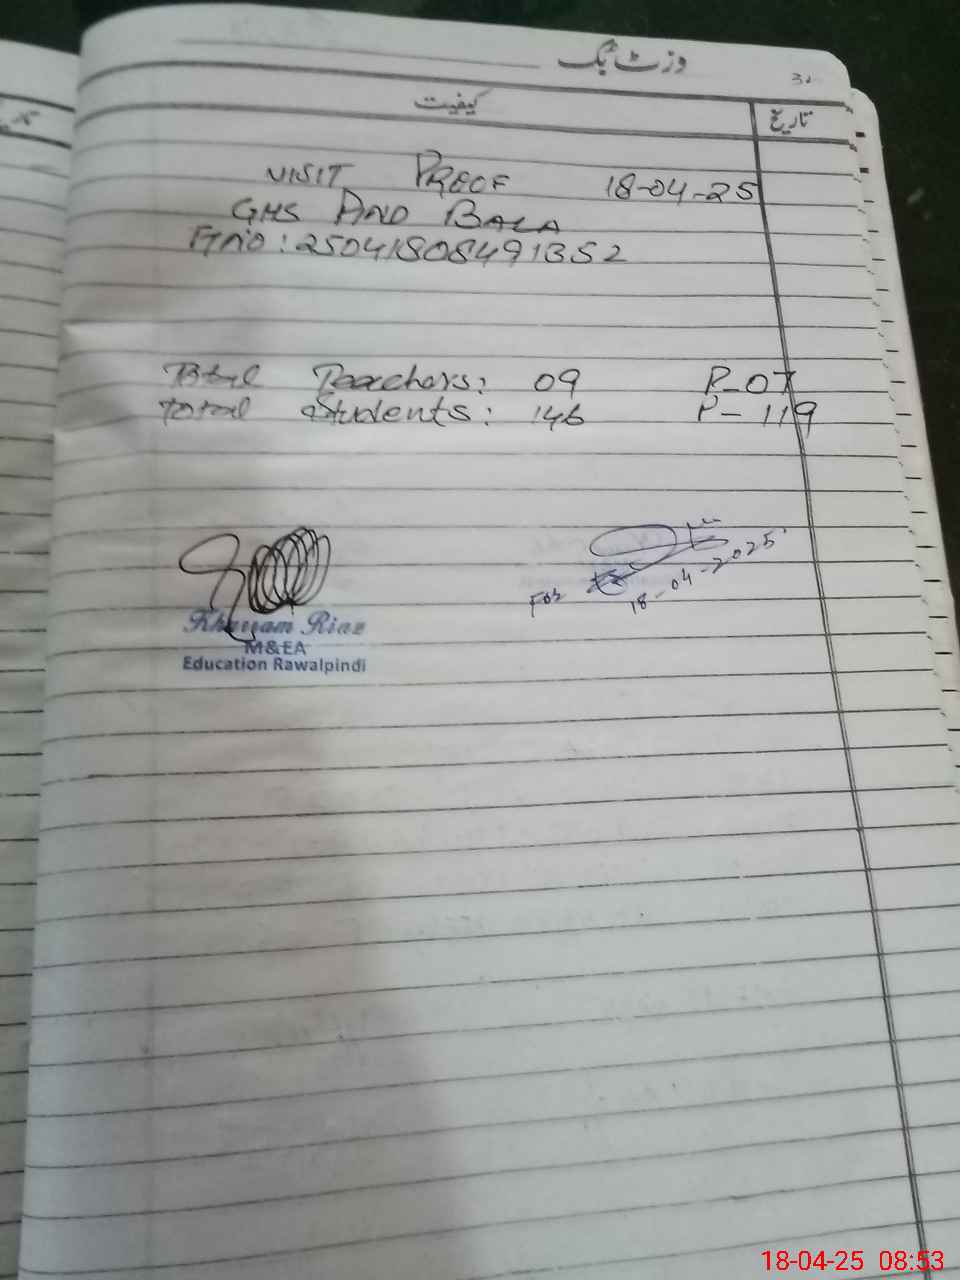 وزٹ بک
32
کیفیت
تاریخ
VISIT PROOF 18-04-25
GHS AND BALA
25041808491352
Total Teachers: 09 P-07
Total Students: 146 P-119
For
18-04-2025
Khayyam Riaz
M&EA
Education Rawalpindi
18-04-25 08:53